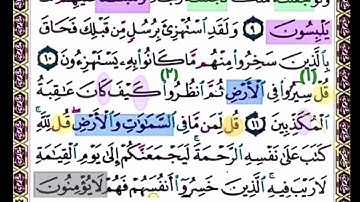 يَلْبِسُونَ ٩ وَلَقَدِ ٱسْتُهْزِئَ بِرُسُلٍ مِّن قَبْلِكَ فَحَاقَ
بِٱلَّذِينَ سَخِرُوا۟ مِنْهُم مَّا كَانُوا۟ بِهِۦ يَسْتَهْزِءُونَ ١٠
(١) (٢)
قُلْ سِيرُوا۟ فِى ٱلْأَرْضِ ثُمَّ ٱنظُرُوا۟ كَيْفَ كَانَ عَٰقِبَةُ
ٱلْمُكَذِّبِينَ ١١ قُل لِّمَن مَّا فِى ٱلسَّمَٰوَٰتِ وَٱلْأَرْضِ ۖ قُل لِّلَّهِ ۚ
كَتَبَ عَلَىٰ نَفْسِهِ ٱلرَّحْمَةَ ۚ لَيَجْمَعَنَّكُمْ إِلَىٰ يَوْمِ ٱلْقِيَٰمَةِ
لَا رَيْبَ فِيهِ ۚ ٱلَّذِينَ خَسِرُوٓا۟ أَنفُسَهُمْ فَهُمْ لَا يُؤْمِنُونَ